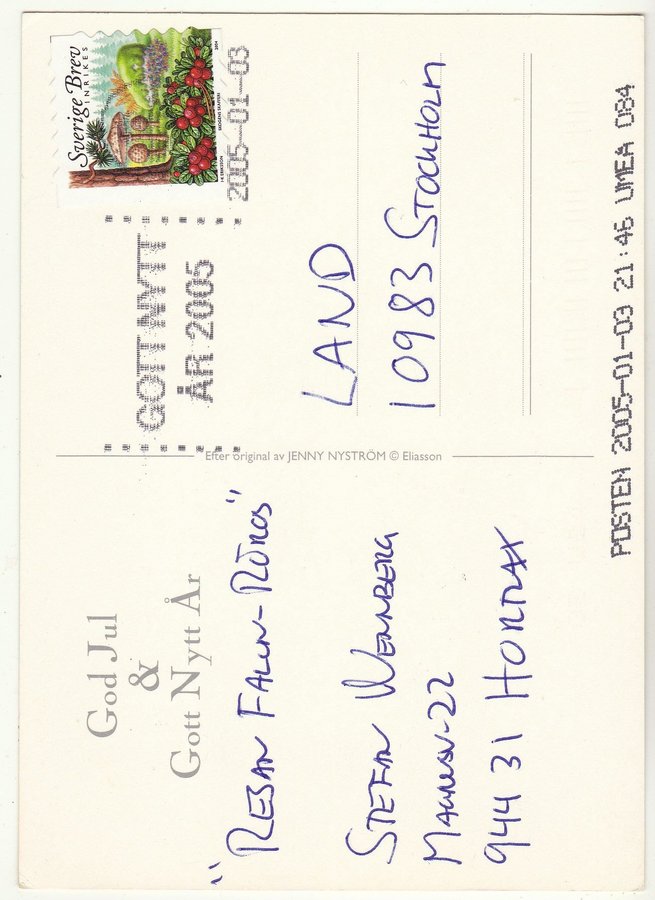 God Jul
&
Gott Nytt År
"RESAN FALUN-RÖROS"
STEFAN WENNBERG
MAGNUSV-22
944 31 HORTLAX
Efter original av JENNY NYSTRÖM © Eliasson
Sverige Brev
INRIKES
2004
GOTT NYTT
ÅR 2005
2005-01-03
LAND
10983 STOCKHOLM
POSTEN 2005-01-03 21:46 UMEA 084